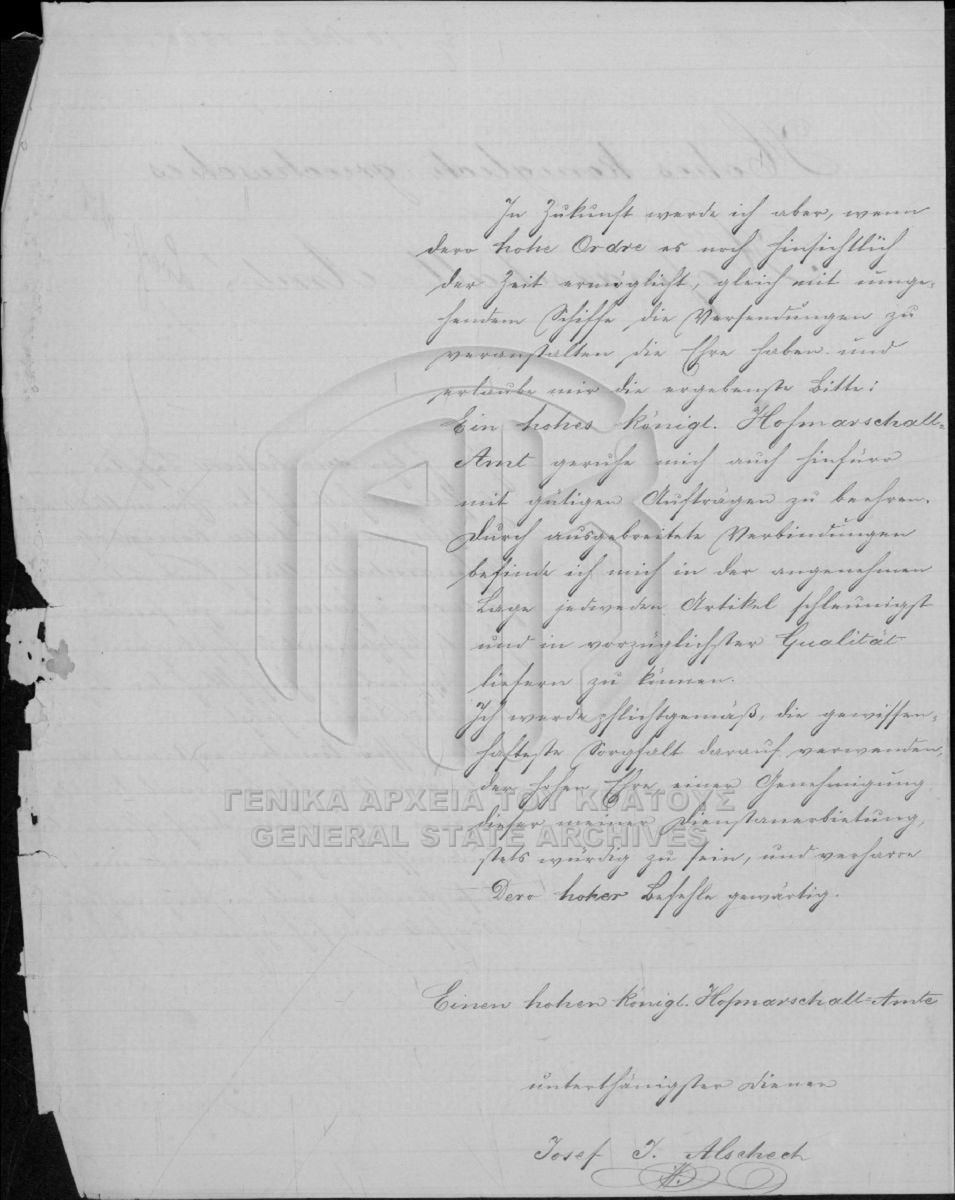 In Zukunft werde ich aber, wenn
dero hohe Ordre es noch hinsichtlich
der Zeit ermöglicht, gleich mit umge-
hendem Schiffe die Versendungen zu
veranstalten die Ehre haben und
erlaube mir die ergebenste Bitte:
Ein hohes königl. Hofmarschall-
Amt geruhe mich auch hinfüro
mit gütigen Aufträgen zu beehren.
Durch ausgebreitete Verbindungen
befinde ich mich in der angenehmen
Lage jedweden Artikel schleunigst
und in vorzüglichster Qualität
liefern zu können.
Ich werde pflichtgemäß, die gewissen-
hafteste Sorgfalt darauf verwenden,
der hohen Ehre einer Genehmigung
dieser meiner Dienstanerbietung,
stets würdig zu sein, und verharre
Dero hoher Befehle gewärtig.
Einen hohen königl. Hofmarschall-Amte
unterthänigster Diener
Josef J. Alschech
ΓΕΝΙΚΑ ΑΡΧΕΙΑ ΤΟΥ ΚΡΑΤΟΥΣ
GENERAL STATE ARCHIVES